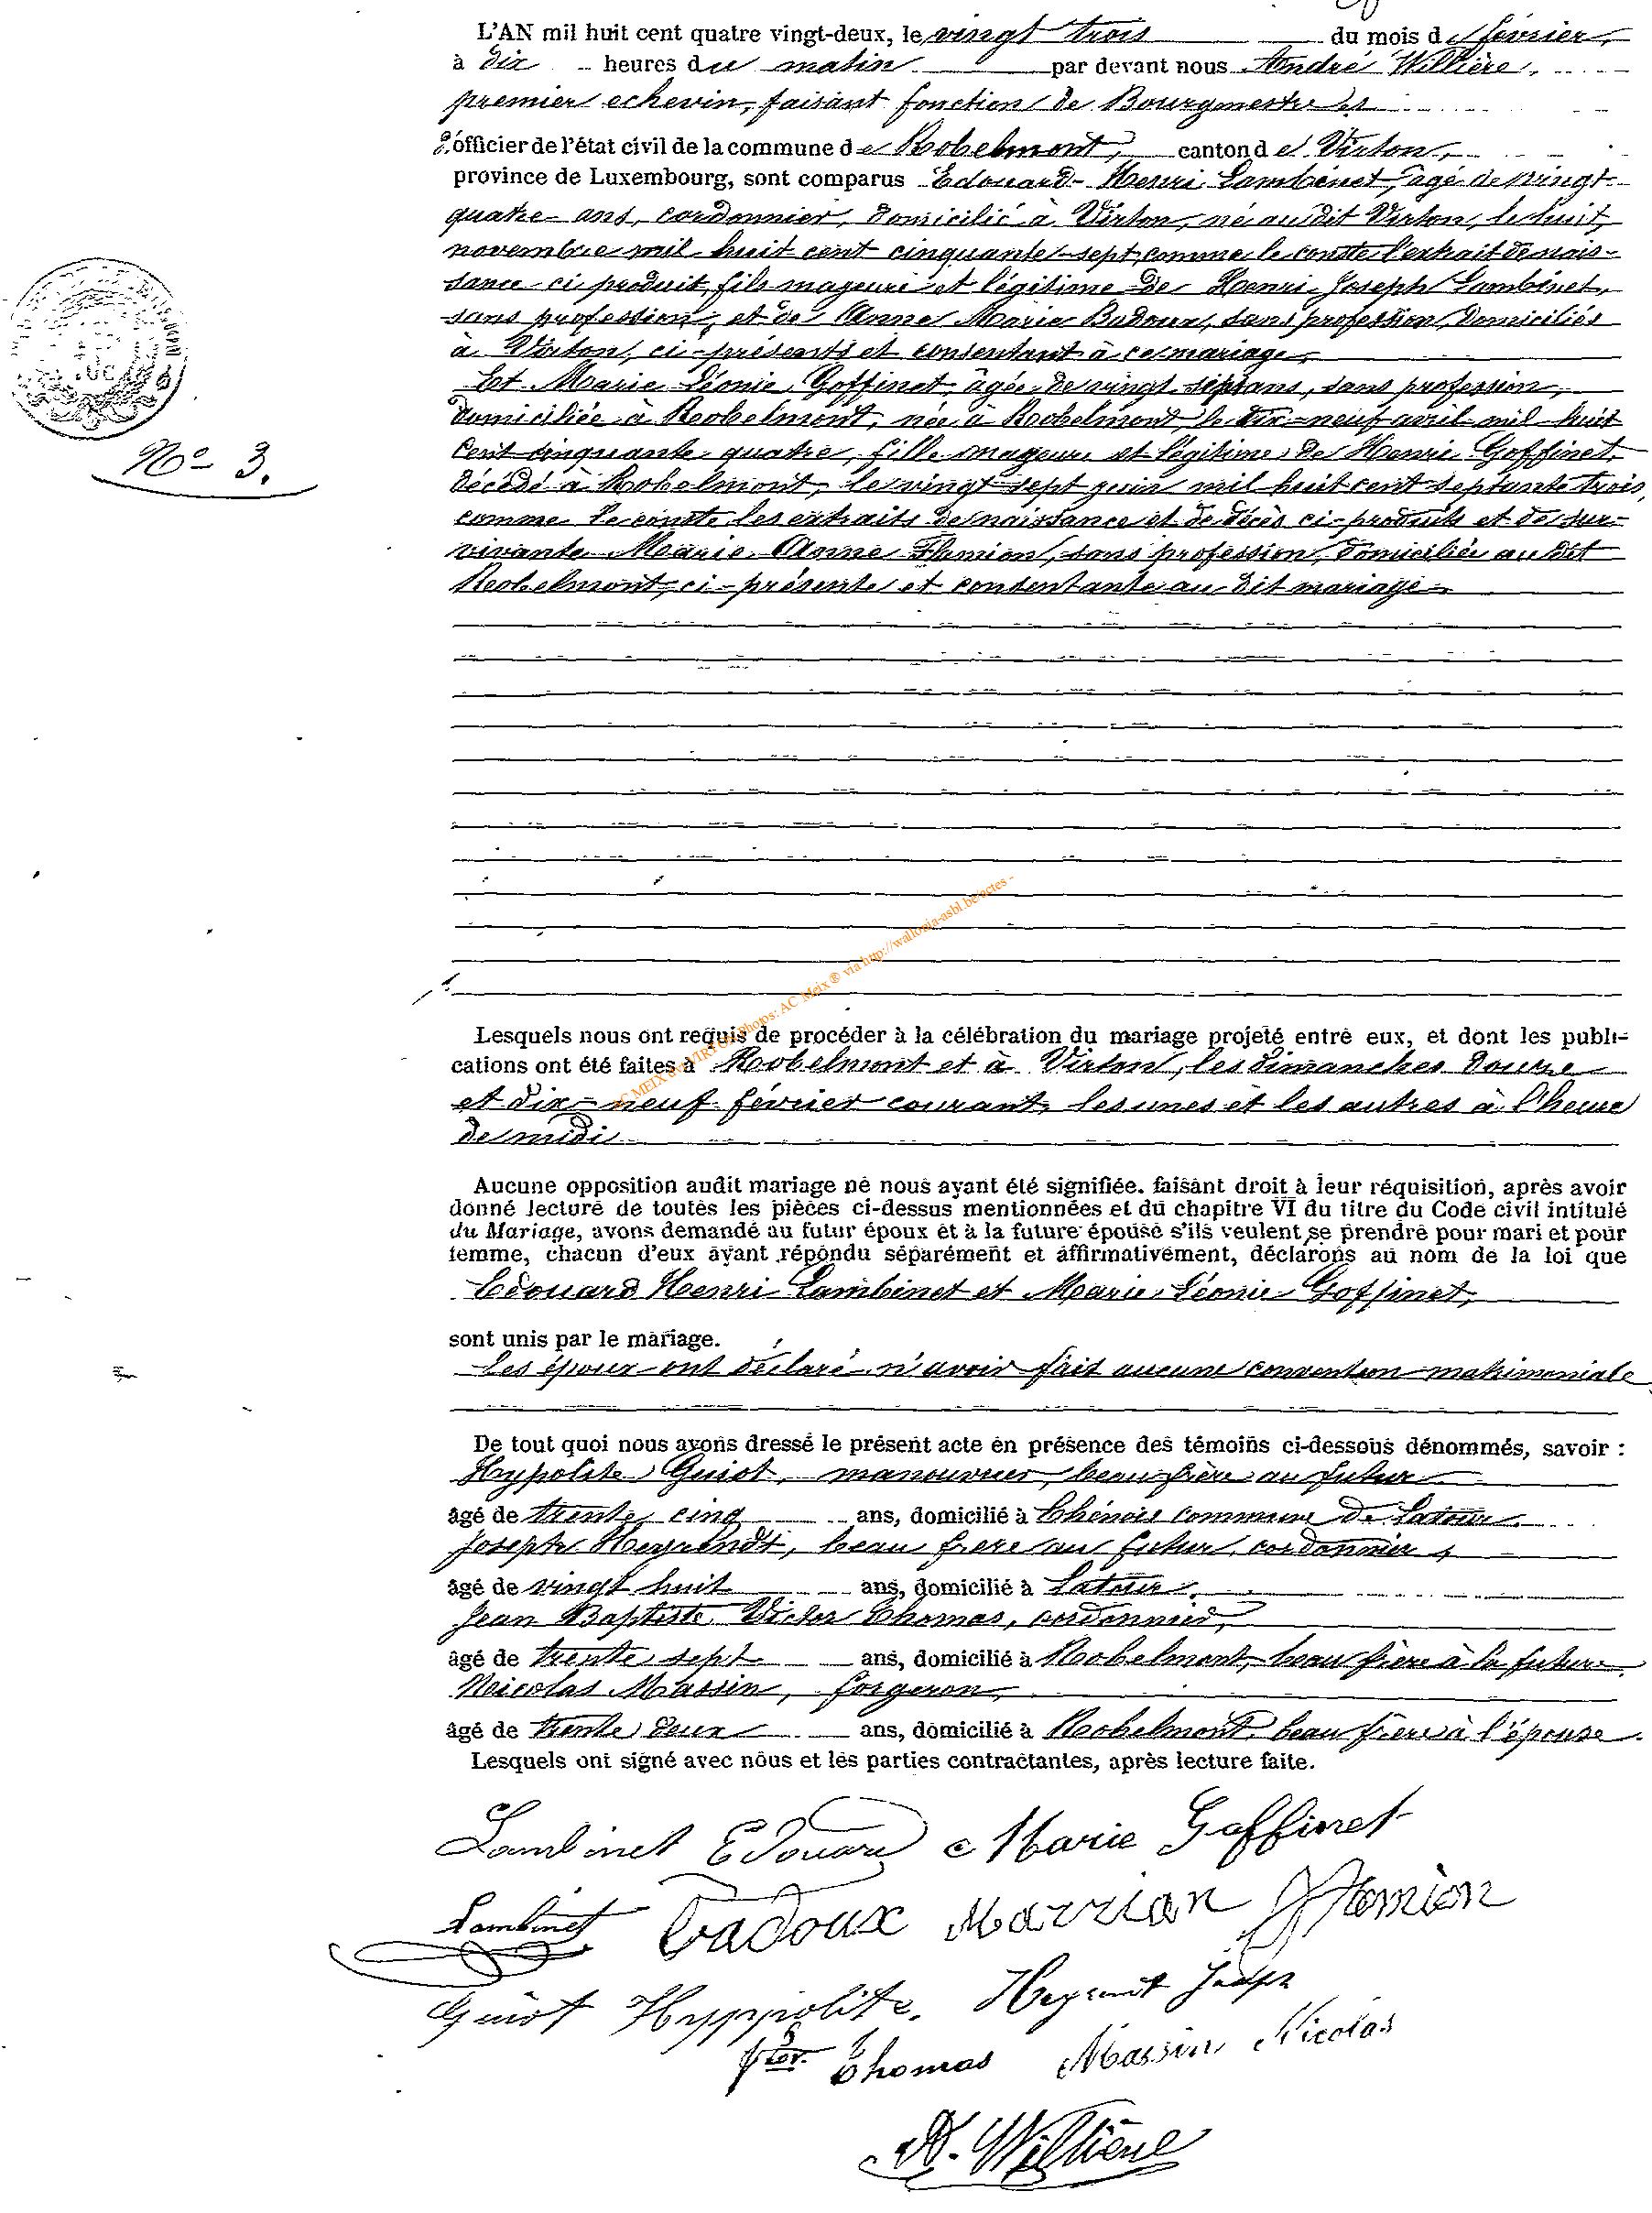 L'AN mil huit cent quatre vingt-deux, le vingt trois du mois de février,
à dix heures du matin par devant nous André Willière,
premier echevin, faisant fonction de Bourgmestre
officier de l'état civil de la commune de Robelmont, canton de Virton,
province de Luxembourg, sont comparus Edouard-Henri Lambinet, âgé de vingt-
quatre ans, cordonnier, domicilié à Virton, né audit Virton, le huit
novembre mil huit cent cinquante-sept, comme le conste l'extrait de nais-
sance ci produit, fils majeur et légitime de Henri Joseph Lambinet,
sans profession, et de Anne Marie Badoux, sans profession, domiciliés
à Virton, ci-présents et consentant à ce mariage,
Et Marie Léonie Goffinet, âgée de vingt sept ans, sans profession,
domiciliée à Robelmont, née à Robelmont le dix-neuf avril mil huit
cent cinquante quatre, fille majeure et légitime de Henri Goffinet,
décédé à Robelmont, le vingt sept juin mil huit cent septante trois,
comme le conste les extraits de naissance et de décès ci-produits et de sur-
vivante Marie Anne Themion, sans profession, domiciliée au dit
Robelmont, ci-présente et consentante au dit mariage.
N° 3.
Lesquels nous ont requis de procéder à la célébration du mariage projeté entre eux, et dont les publi-
cations ont été faites à Robelmont et à Virton, les dimanches douze
et dix-neuf février courant, les unes et les autres à l'heure
de midi
AC MEIX dvt VIRTON Photos: AC Meix ® via http://wallonia-asbl.be/actes -
Aucune opposition audit mariage ne nous ayant été signifiée. faisant droit à leur réquisition, après avoir
donné lecture de toutes les pièces ci-dessus mentionnées et du chapitre VI du titre du Code civil intitulé
du Mariage, avons demandé au futur époux et à la future épouse s'ils veulent se prendre pour mari et pour
femme, chacun d'eux ayant répondu séparément et affirmativement, déclarons au nom de la loi que
Edouard Henri Lambinet et Marie Léonie Goffinet,
sont unis par le mariage.
Les époux ont déclaré n'avoir fait aucune convention matrimoniale
De tout quoi nous avons dressé le présent acte en présence des témoins ci-dessous dénommés, savoir :
Hypolite Guiot, manouvrier, beau frère au futur
âgé de trente cinq ans, domicilié à Chénois commune de Latour
Joseph Heyrendt, beau frere au futur, cordonnier,
âgé de vingt huit ans, domicilié à Latour,
Jean Baptiste Victor Thomas, cordonnier,
âgé de trente sept ans, domicilié à Robelmont, beau frère à la future,
Nicolas Massin, forgeron,
âgé de trente deux ans, domicilié à Robelmont, beau frère à l'épouse.
Lesquels ont signé avec nous et les parties contractantes, après lecture faite.
Lambinet Edouard Marie Goffinet
Lambinet Badoux Marrian
Guiot Hyppolite. Joseph
Thomas Massin Nicolas
A. Willière